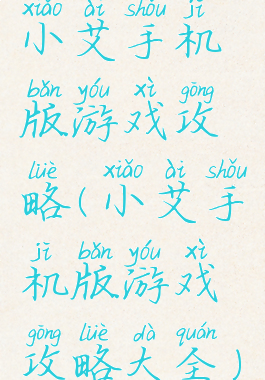 xiǎo ài shǒu jī
小艾手机
bǎn yóu xì gōng
版游戏攻
lüè xiǎo ài shǒu
略(小艾手
jī bǎn yóu xì
机版游戏
gōng lüè dà quán
攻略大全)